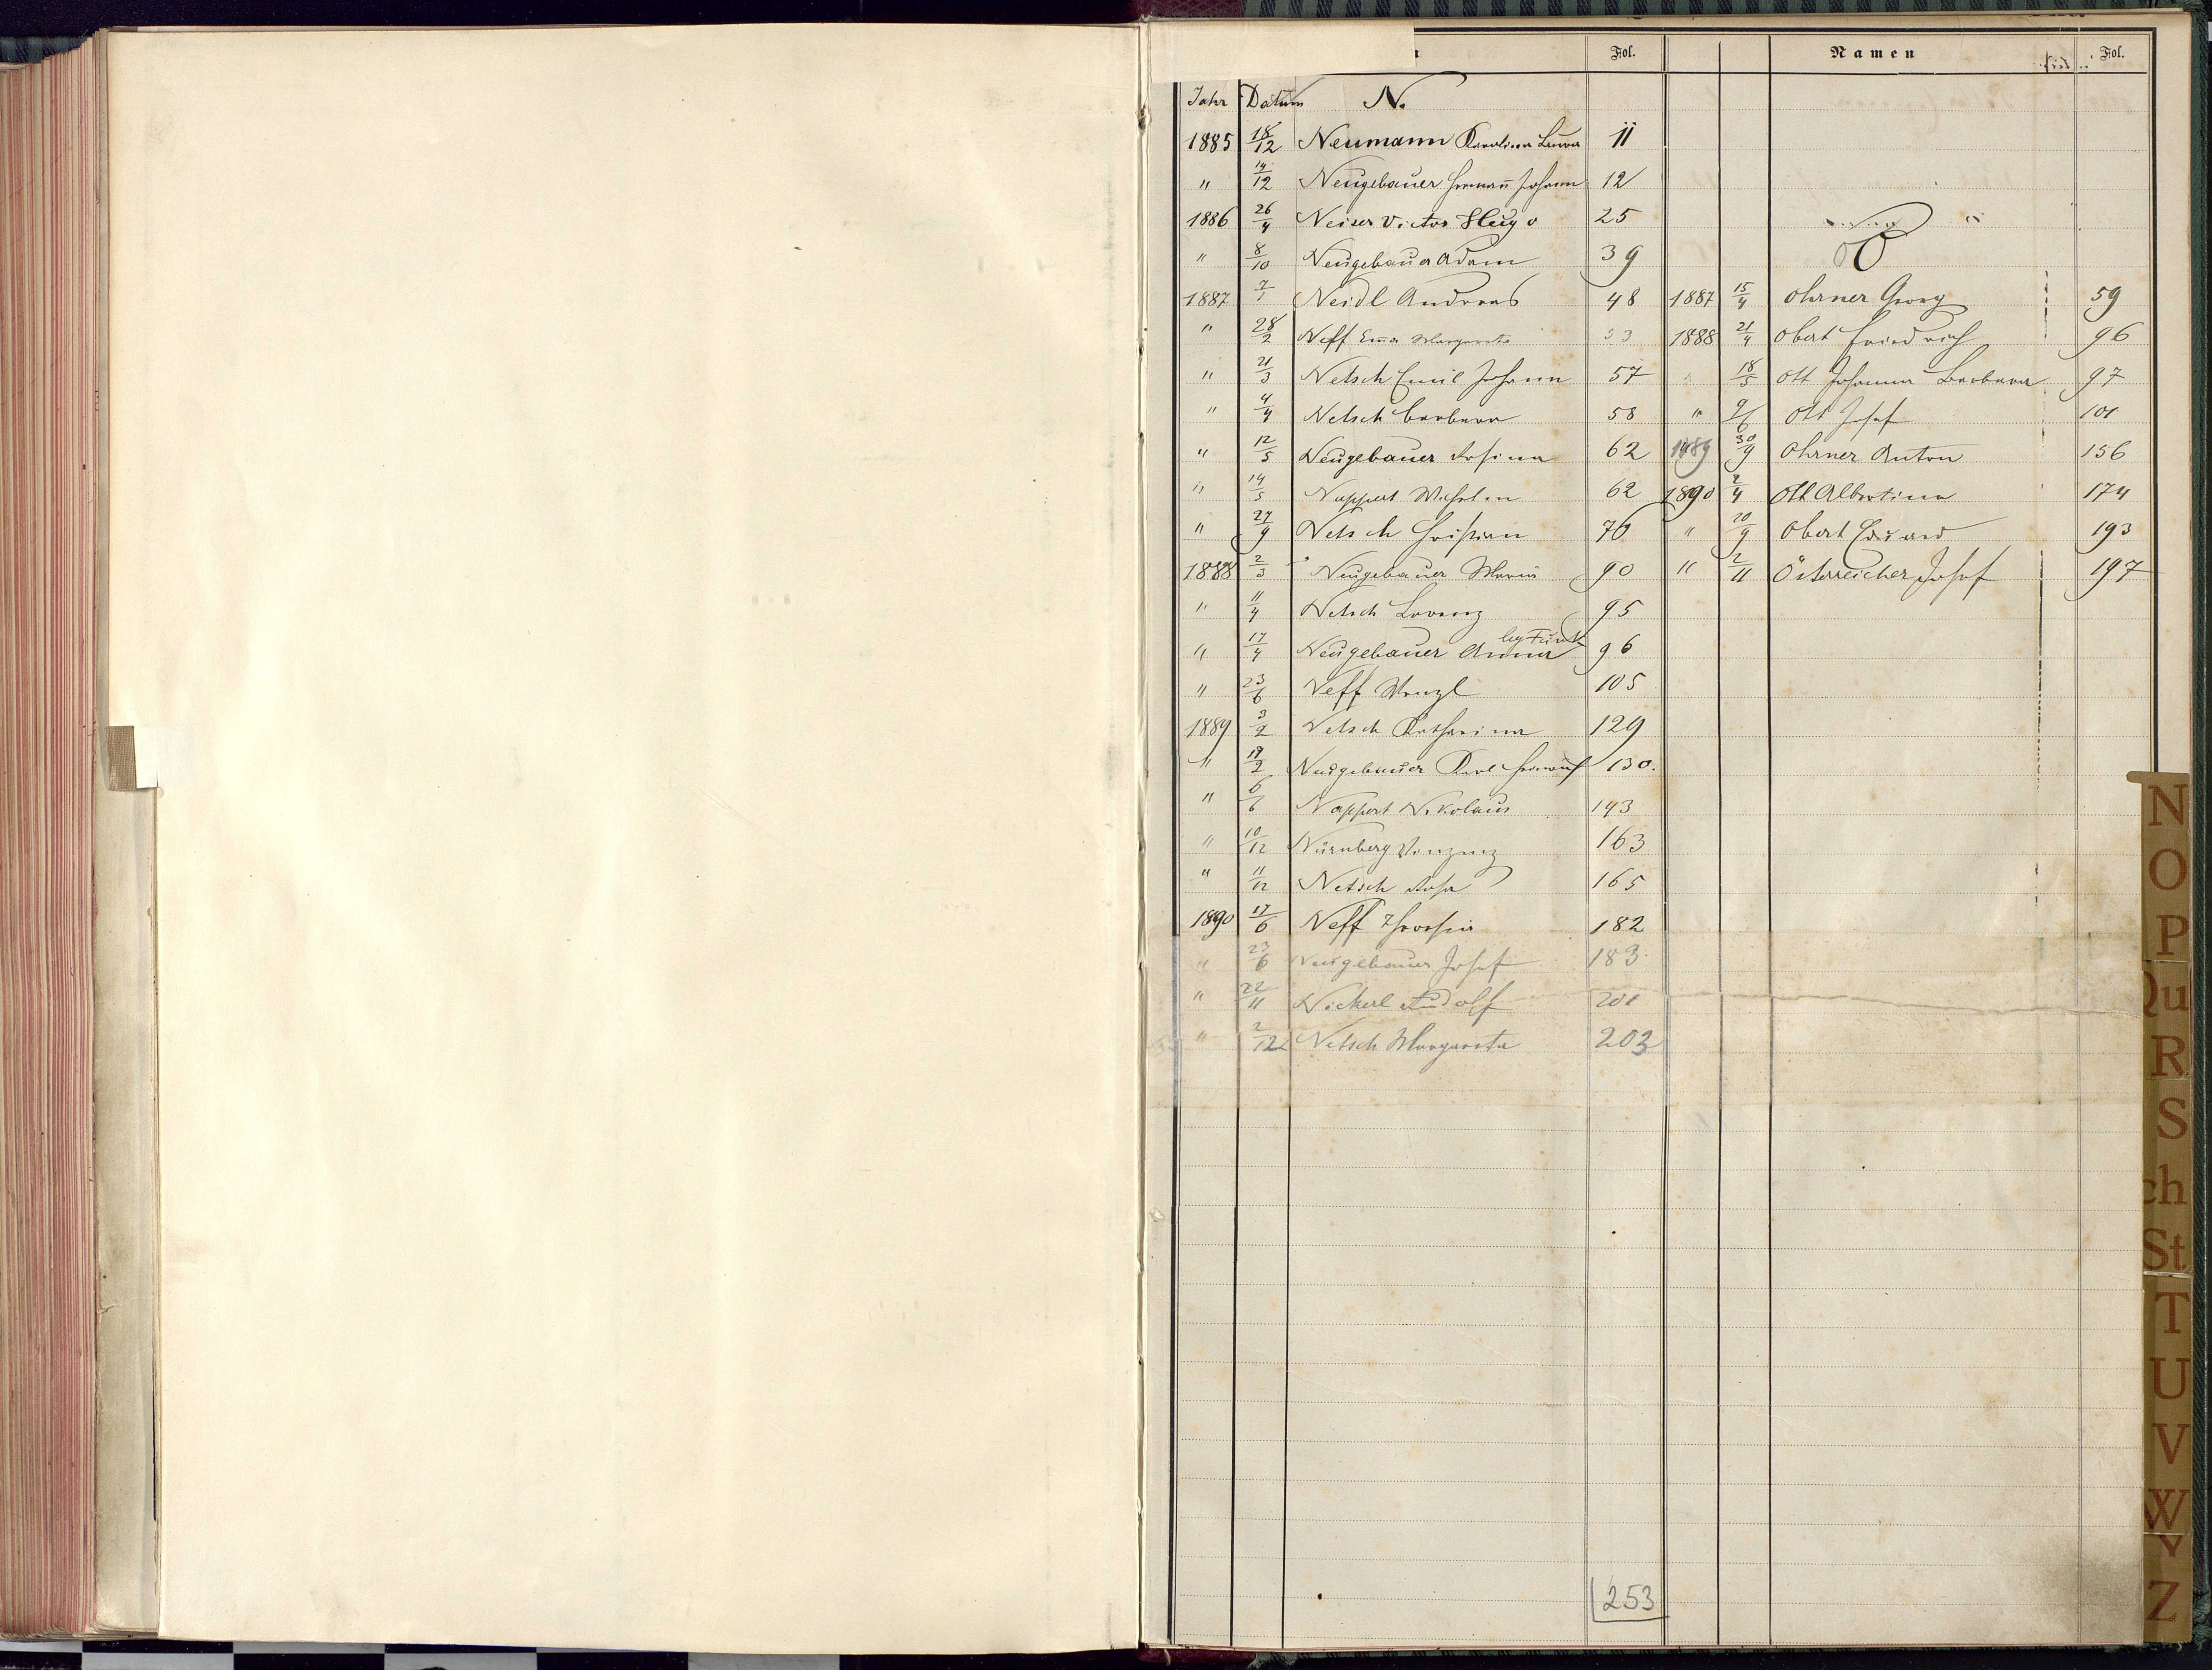 Fol.
Namen
Fol.
Jahr Datum N.
1885 18/12 Neumann Karolina Laura 11
" 14/12 Neugebauer Hermañ Johann 12
1886 26/4 Neiser Victor Hugo 25
" 8/10 Neugebauer Adam 39
1887 7/1 Neidl Andreas 48
" 28/2 Neff Emma Margareta 53
" 21/3 Netsch Emil Johann 57
" 4/4 Netsch Barbara 58
" 12/5 Neugebauer Rosina 62
" 14/5 Nappert 62
" 27/9 Netsch Christian 76
1888 2/3 Neugebauer Maria 90
" 11/4 Netsch Lorenz 95
" 17/4 Neugebauer Anna 96
" 23/6 Neff Wenzl 105
1889 3/2 Netsch Katharina 129
" 19/2 Neugebauer Karl 130.
" 6/6 Nappert Nikolaus 143
" 10/12 Nürnberg Vinzenz 163
" 11/12 Netsch Rosa 165
1890 17/6 Neff Theresia 182
" 23/6 Neugebauer Josef 183
" 22/11 Nickerl Rudolf 201
" 2/12 Netsch Margareta 203
253
O
1887 15/4 Ohrner Georg 59
1888 21/4 Obert Friedrich 96
" 18/5 Ott Johanna Barbara 97
" 9/6 Ott Josef 101
1889 30/9 Ohrner Anton 156
1890 2/4 Ott Albertina 174
" 20/9 Obert Eduard 193
" 2/11 Österreicher Josef 197
N
O
P
Qu
R
S
ch
St
T
U
V
W
Y
Z